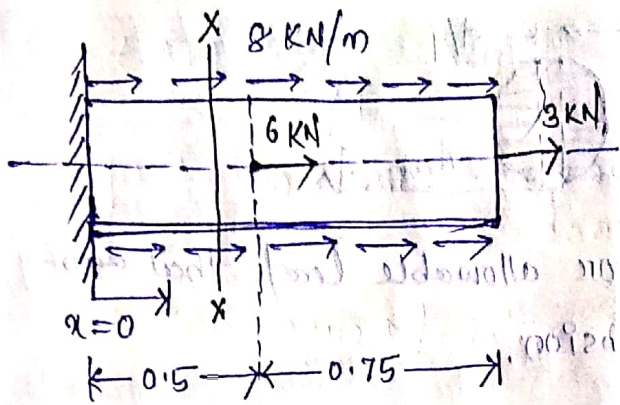 X
8 KN/m
6 KN
3 KN
x=0
X
0.5
0.75